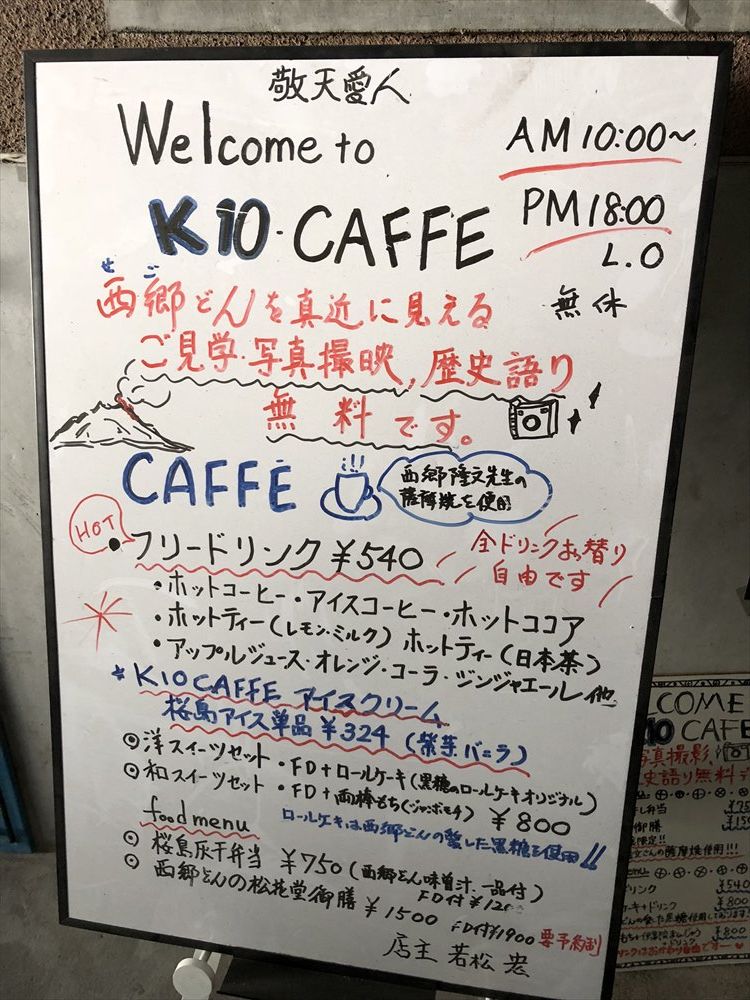 敬天愛人
Welcome to
AM10:00~
K10・CAFFE
PM18:00
L.O
無休
せご
西郷どんを真近に見える
ご見学・写真撮映,歴史語り
無料です。
CAFFE
西郷隆文先生の
薩摩焼を使用
HOT
・フリードリンク ¥540
全ドリンクおっ替り
自由です
・ホットコーヒー・アイスコーヒー・ホットココア
・ホットティー(レモン・ミルク) ホットティー(日本茶)
・アップルジュース・オレンジ・コーラ・ジンジャエール 他
* K10CAFFE アイスクリーム
桜島アイス単品 ¥324 (紫芋バニラ)
◎ 洋スイーツセット・FD+ロールケーキ(黒糖のロールケーキオリジナル)
◎ 和スイーツセット・FD+両棒もち(ジャンボモチ) ¥800
ロールケーキは西郷どんの愛した黒糖を使用!!
food menu
◎ 桜島灰干弁当 ¥750(西郷どん味噌汁、一品付)
FD付
◎ 西郷どんの松花堂御膳 ¥1500 FD付¥1900 要予約制
店主 若松 宏
COME
K10 CAFE
写真撮影,
史語り無料
弁当
御膳
薩摩焼使用!!!
menu
ドリンク ¥540
ケーキ+ドリンク ¥800
¥800